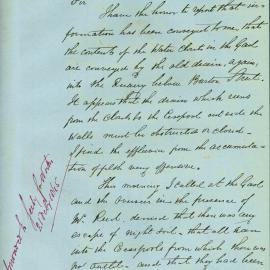 Sir
I have the honor to report that in-
formation has been conveyed to me, that
the contents of the Water Closets in the Gaol
are conveyed by the old drain, again,
into the Quarry below Burton Street.
It appears that the drain which runs
from the Closets to the Cesspool outside the
Walls must be obstructed or closed.
I find the effluvia from the accumula-
tion of filth very offensive.
This morning I called at the Gaol
and the Overseer in the presence of
Mr Read, denied that there was any
escape of night soil, that all ran
into the Cesspools from which there was
no outlet, and that they had been